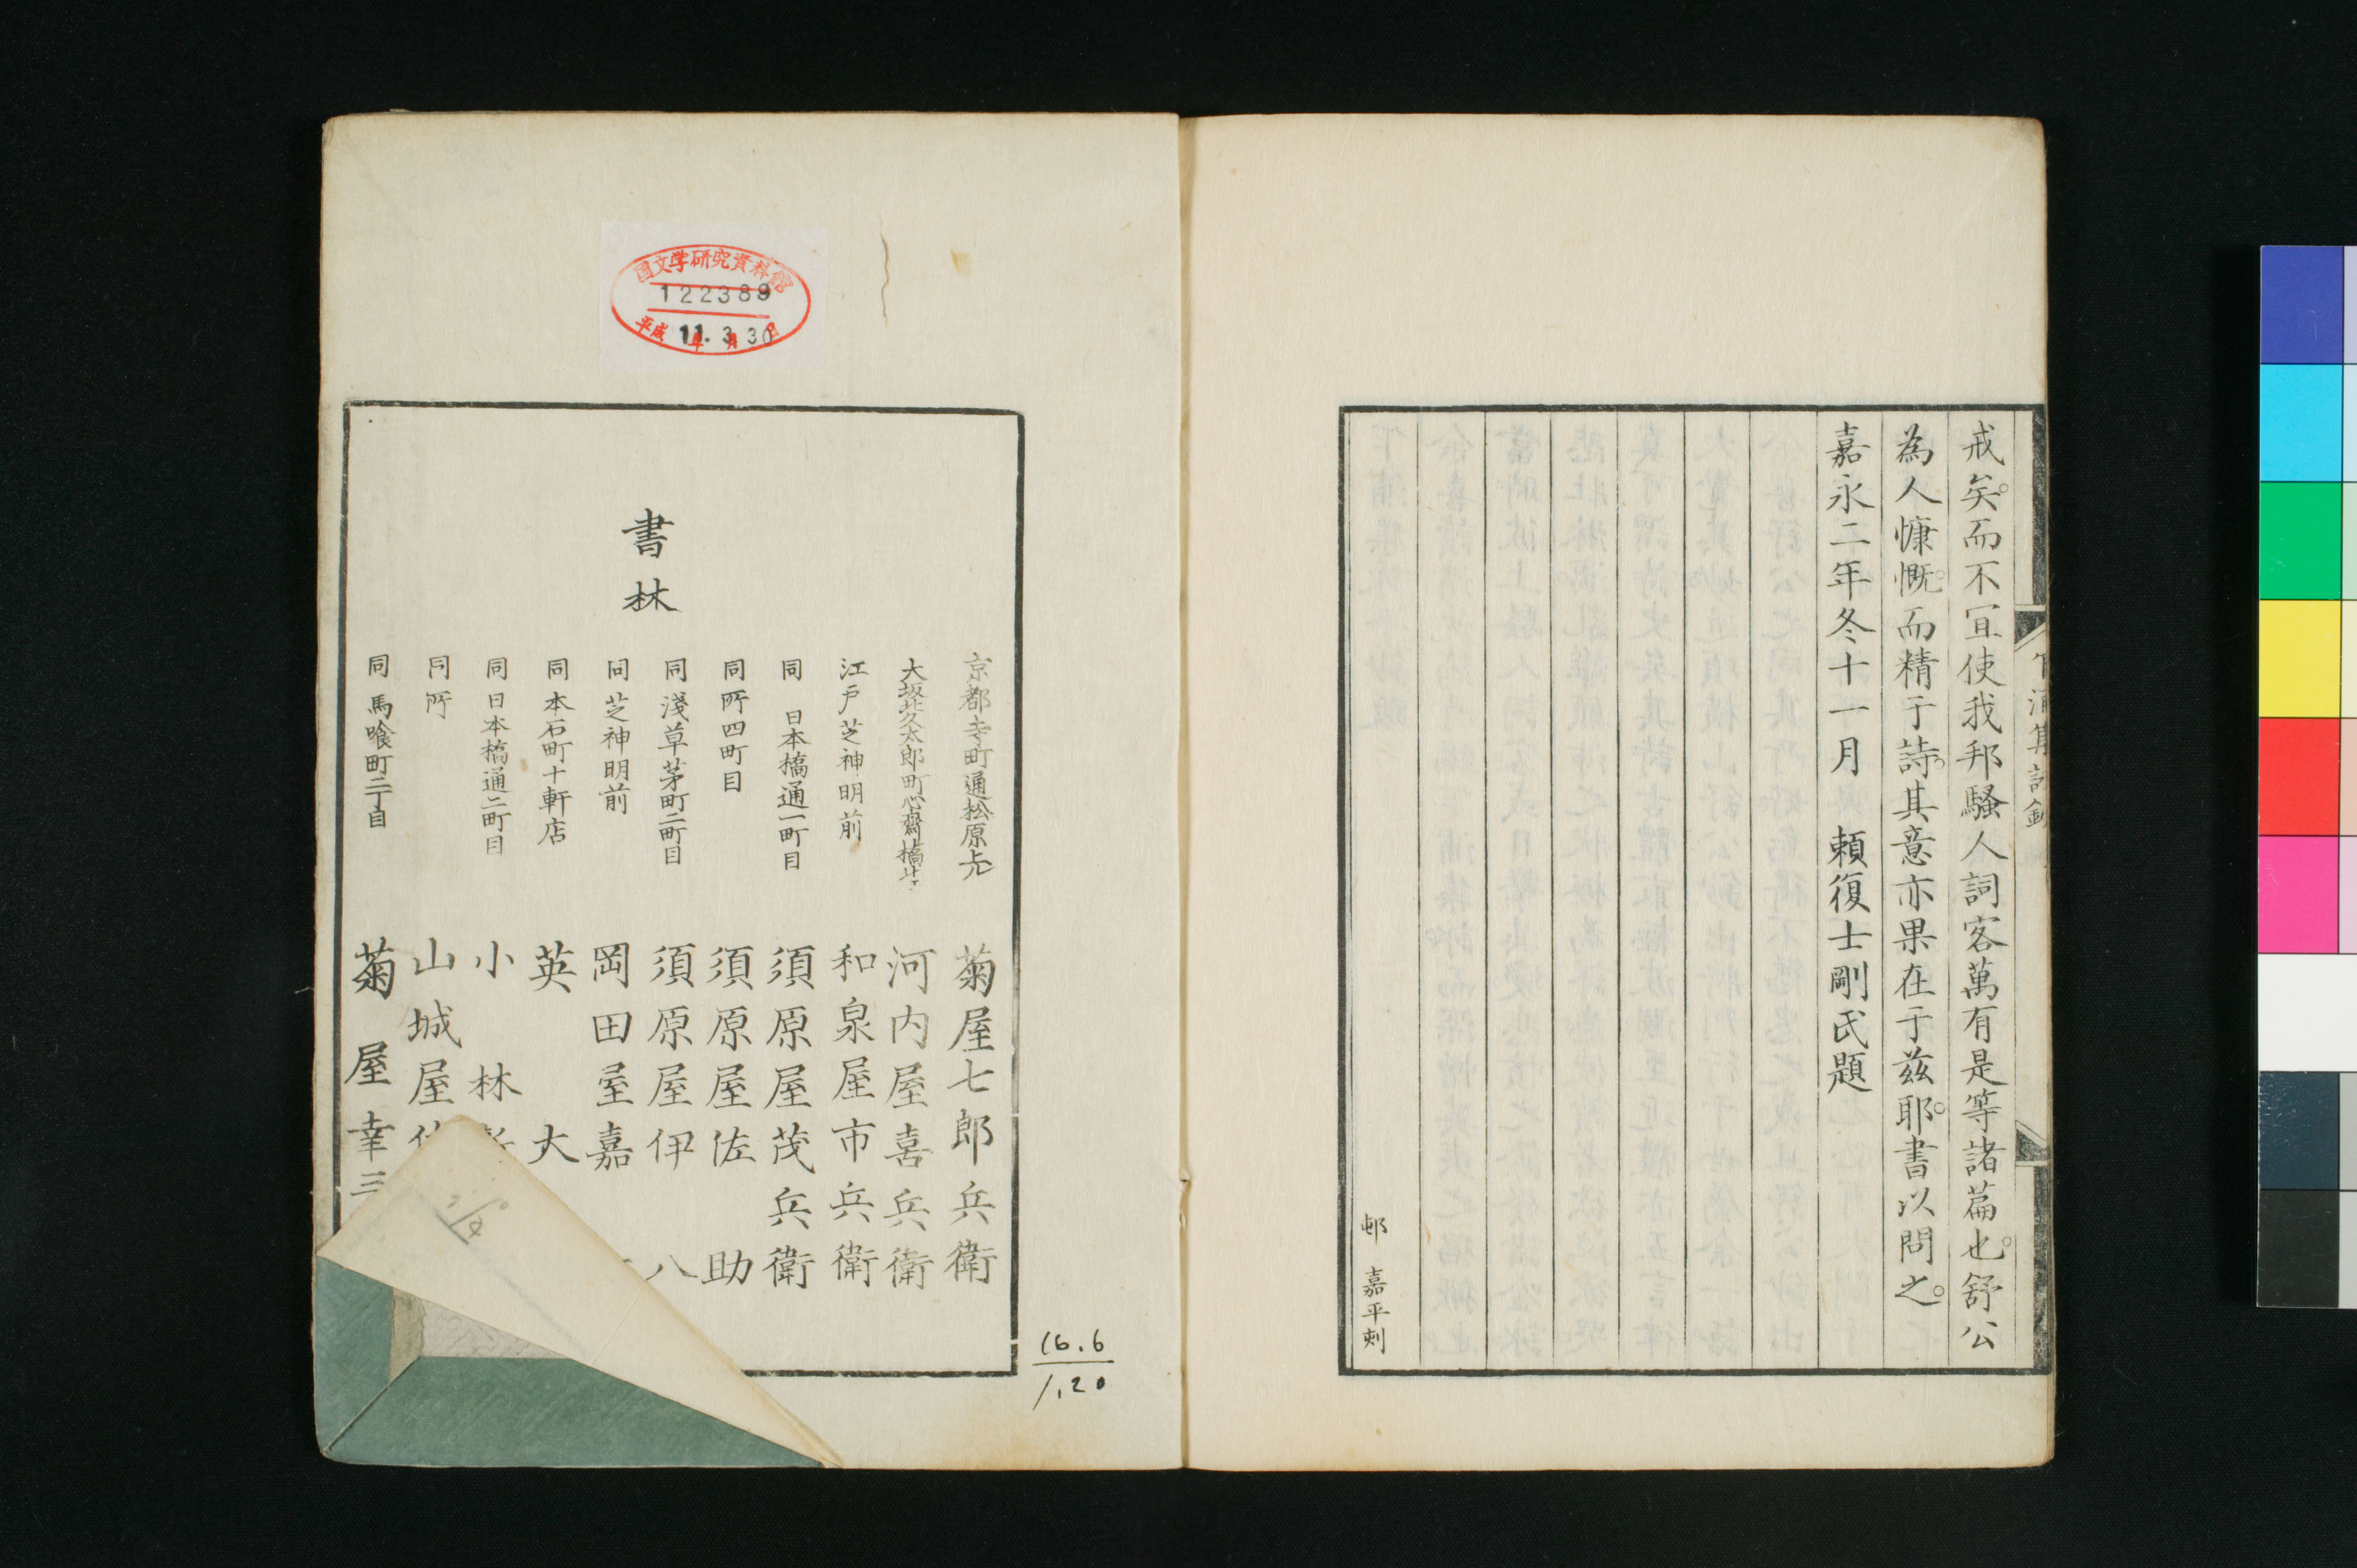 戒矣。而不宜使我邦騷人詞客萬有是等諸篇也。舒公
為人慷慨。而精于詩。其意亦果在于茲耶。書以問之。
嘉永二年冬十一月　頼復士剛氏題
邨　嘉平刻
国文学研究資料館
122389
平成11年3月30日
書林
京都寺町通松原上
菊屋七郎兵衛
大坂北久太郎町心齋橋
河内屋喜兵衛
江戸芝神明前
和泉屋市兵衛
同　日本橋通一町目
須原屋茂兵衛
同所四町目
須原屋佐助
同　淺草茅町二町目
須原屋伊八
同　芝神明前
岡田屋嘉
同　本石町十軒店
英大
同　日本橋通二町目
小林
同所
山城屋
同　馬喰町二丁目
菊屋幸三
16.6
1,20